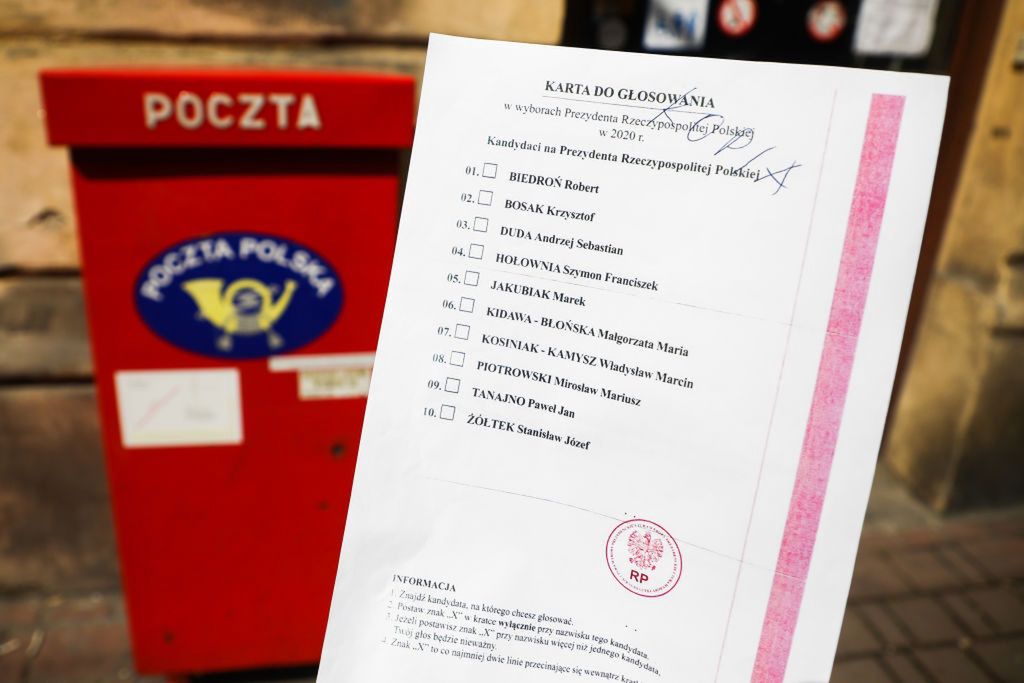 POCZTA
POCZTA POLSKA
KARTA DO GŁOSOWANIA
w wyborach Prezydenta Rzeczypospolitej Polskiej
w 2020 r.
KOPIA
Kandydaci na Prezydenta Rzeczypospolitej Polskiej
01. BIEDROŃ Robert
02. BOSAK Krzysztof
03. DUDA Andrzej Sebastian
04. HOŁOWNIA Szymon Franciszek
05. JAKUBIAK Marek
06. KIDAWA - BŁOŃSKA Małgorzata Maria
07. KOSINIAK - KAMYSZ Władysław Marcin
08. PIOTROWSKI Mirosław Mariusz
09. TANAJNO Paweł Jan
10. ŻÓŁTEK Stanisław Józef
RP
INFORMACJA
1. Znajdź kandydata, na którego chcesz głosować.
2. Postaw znak „X" w kratce wyłącznie przy nazwisku tego kandydata.
3. Jeżeli postawisz znak „X" przy nazwisku więcej niż jednego kandydata,
Twój głos będzie nieważny.
4. Znak „X" to co najmniej dwie linie przecinające się wewnątrz